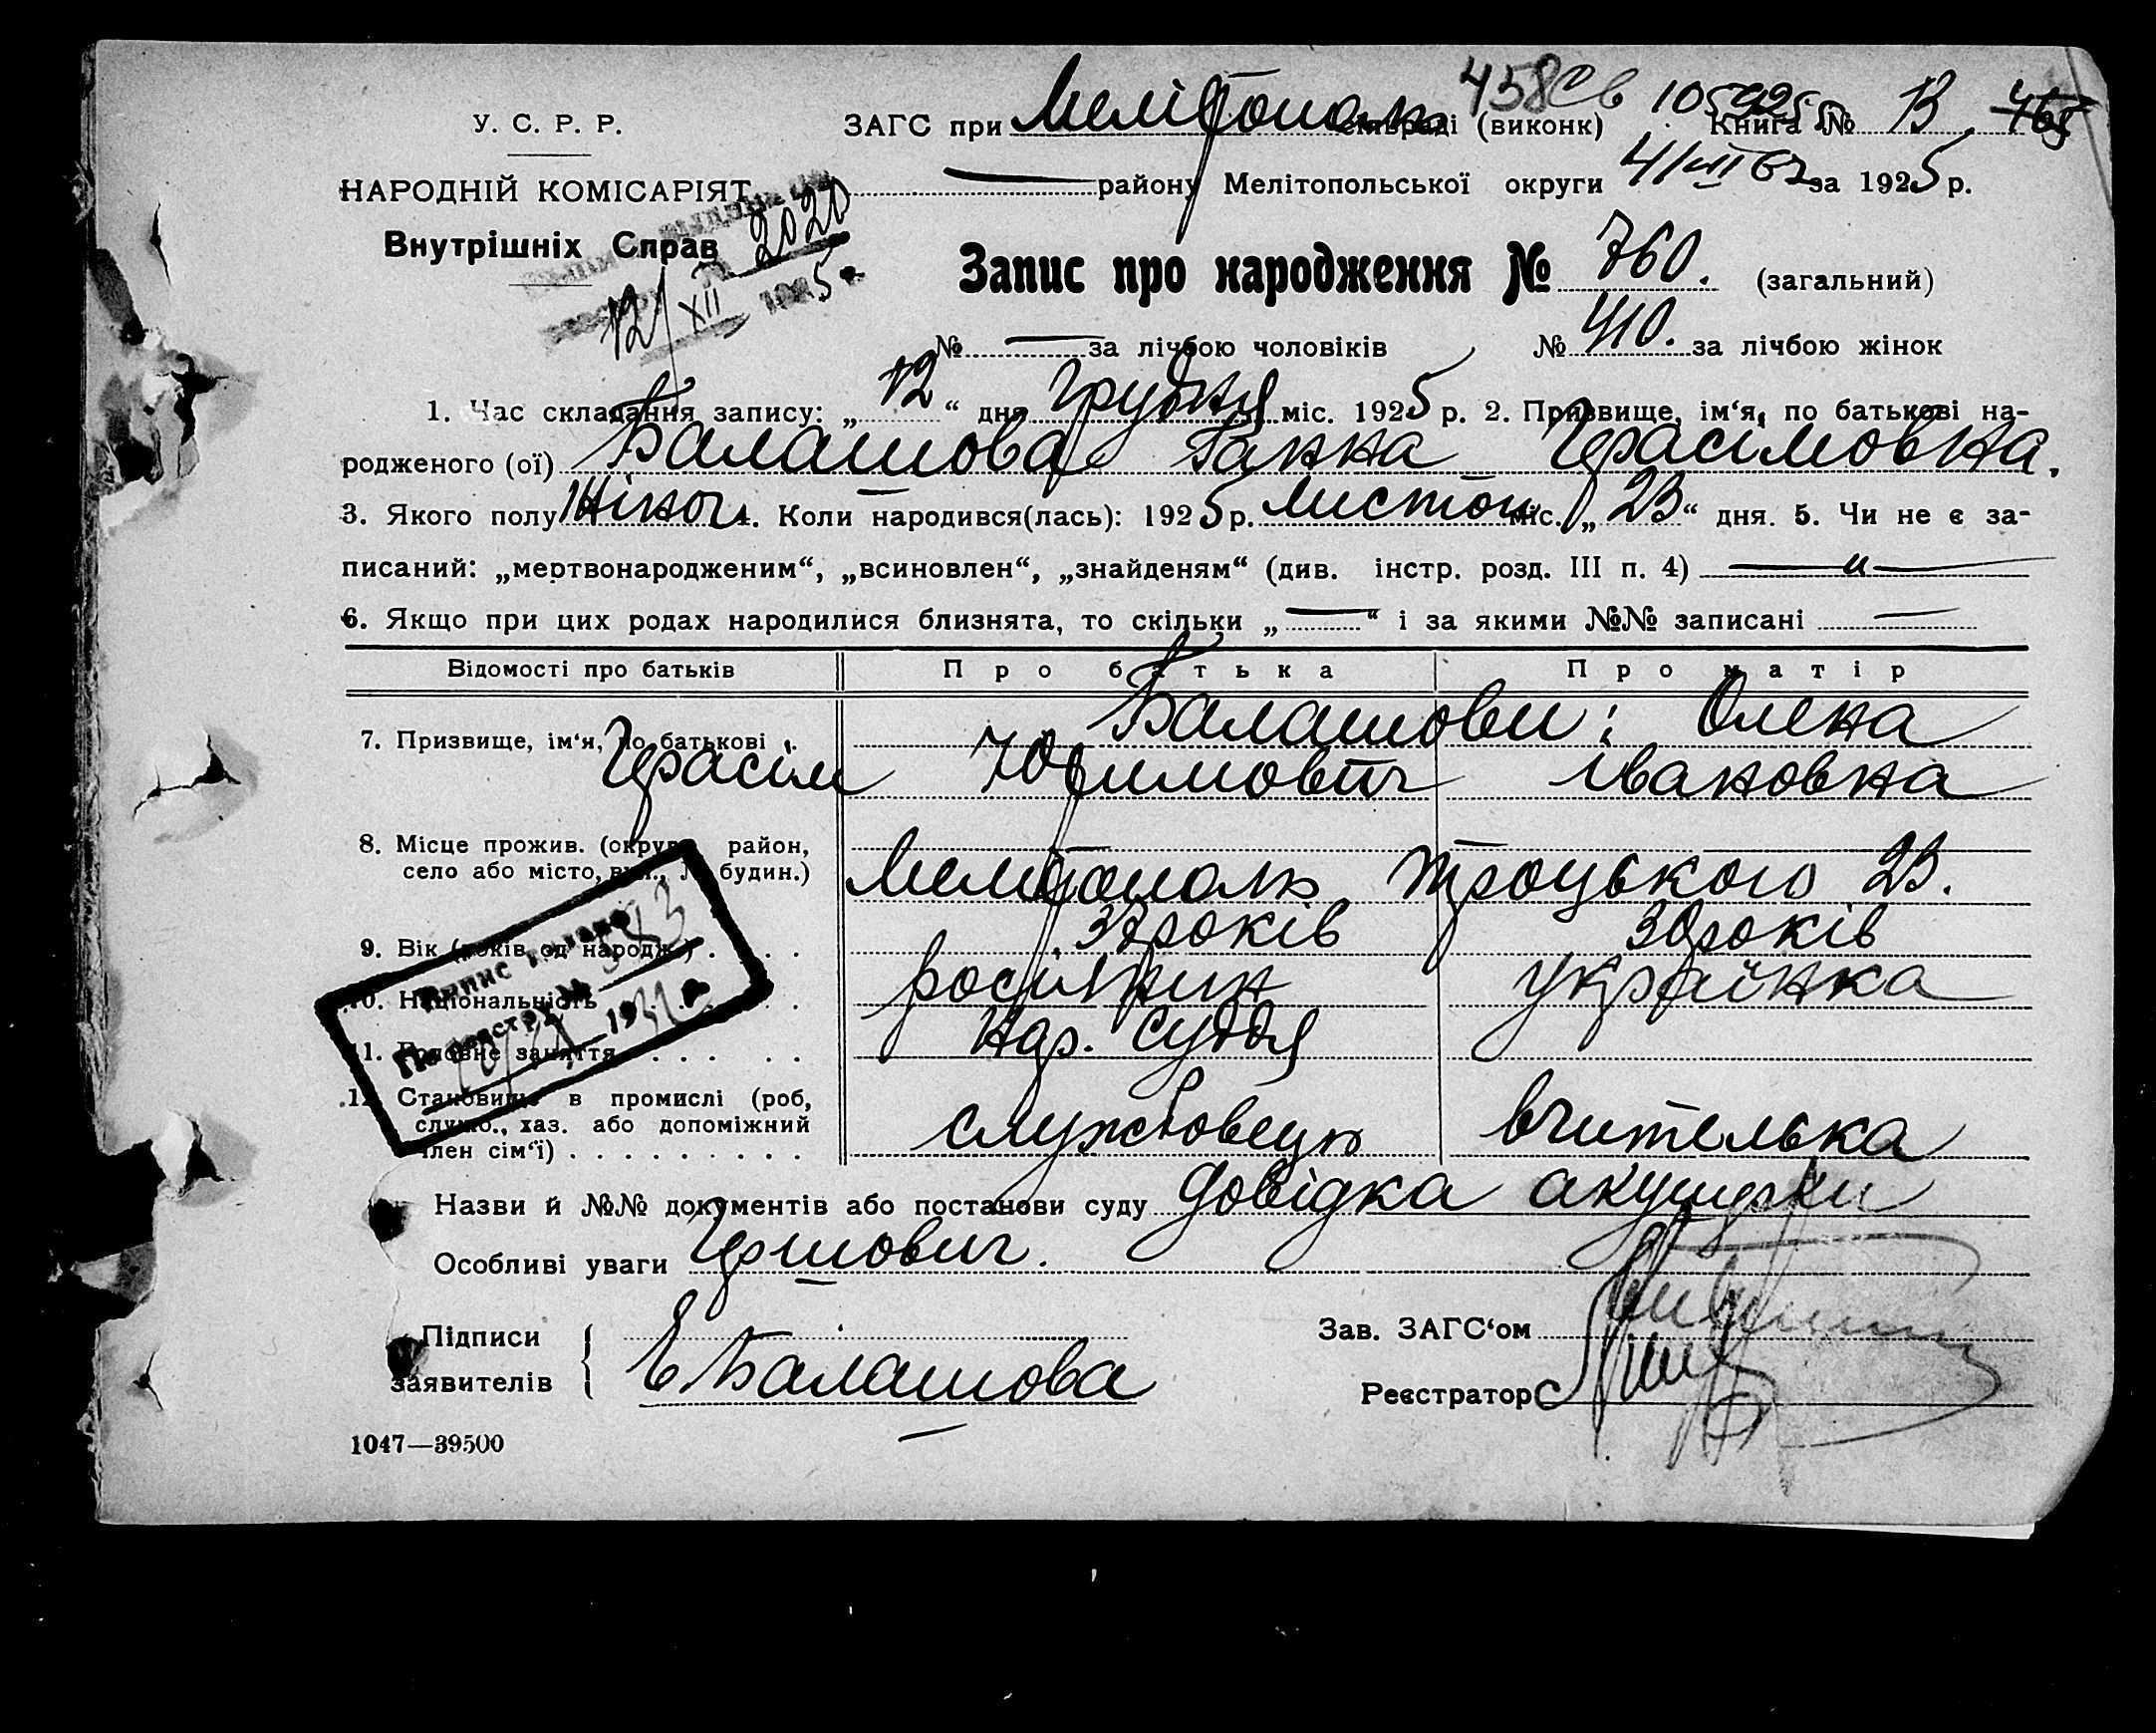 458 Св 105925
У. С. Р. Р. ЗАГС при Мелітополь сільраді (виконк) Книга № 13. 465
НАРОДНІЙ КОМІСАРІЯТ — району Мелітопольської округи за 1925 р.
Внутрішніх Справ 2020
12/XII 1925
Запис про народження № 760. (загальний)
№ — за лічбою чоловіків № 410. за лічбою жінок
1. Час складання запису: „12“ дня Грудня міс. 1925 р. 2. Призвище, ім‘я, по батькові на-
родженого (ої) Балашова Ганна Герасімовна.
3. Якого полу Жіноч. 4. Коли народився(лась): 1925 р. листоп. міс. „23“ дня. 5. Чи не є за-
писаний: „мертвонародженим“, „всиновлен“, „знайденям“ (див. інстр. розд. III п. 4) — „ —
6. Якщо при цих родах народилися близнята, то скільки „—“ і за якими №№ записані —
Відомості про батьків Про батька Про матір
7. Призвище, ім‘я, по батькові . Балашови: Олена
Герасім Юхимович Івановна
8. Місце прожив. (округа, район,
село або місто, вул., № будин.) Мелітополь Троцького 23.
9. Вік (років од народж.) . . . років 30 років
10. Національність . . росіянин українка
11. Головне заняття . . . . . Нар. Суддя
12. Становище в промислі (роб,
служб., хаз. або допоміжний
член сім‘ї) . . . . . . . . . службовець вчителька
Випис видано
По реєстру № 583
193
Назви й №№ документів або постанови суду довідка акушерки
Особливі уваги Гершович.
Підписи
заявителів Е Балашова
Зав. ЗАГС‘ом
Реєстратор
1047—39500